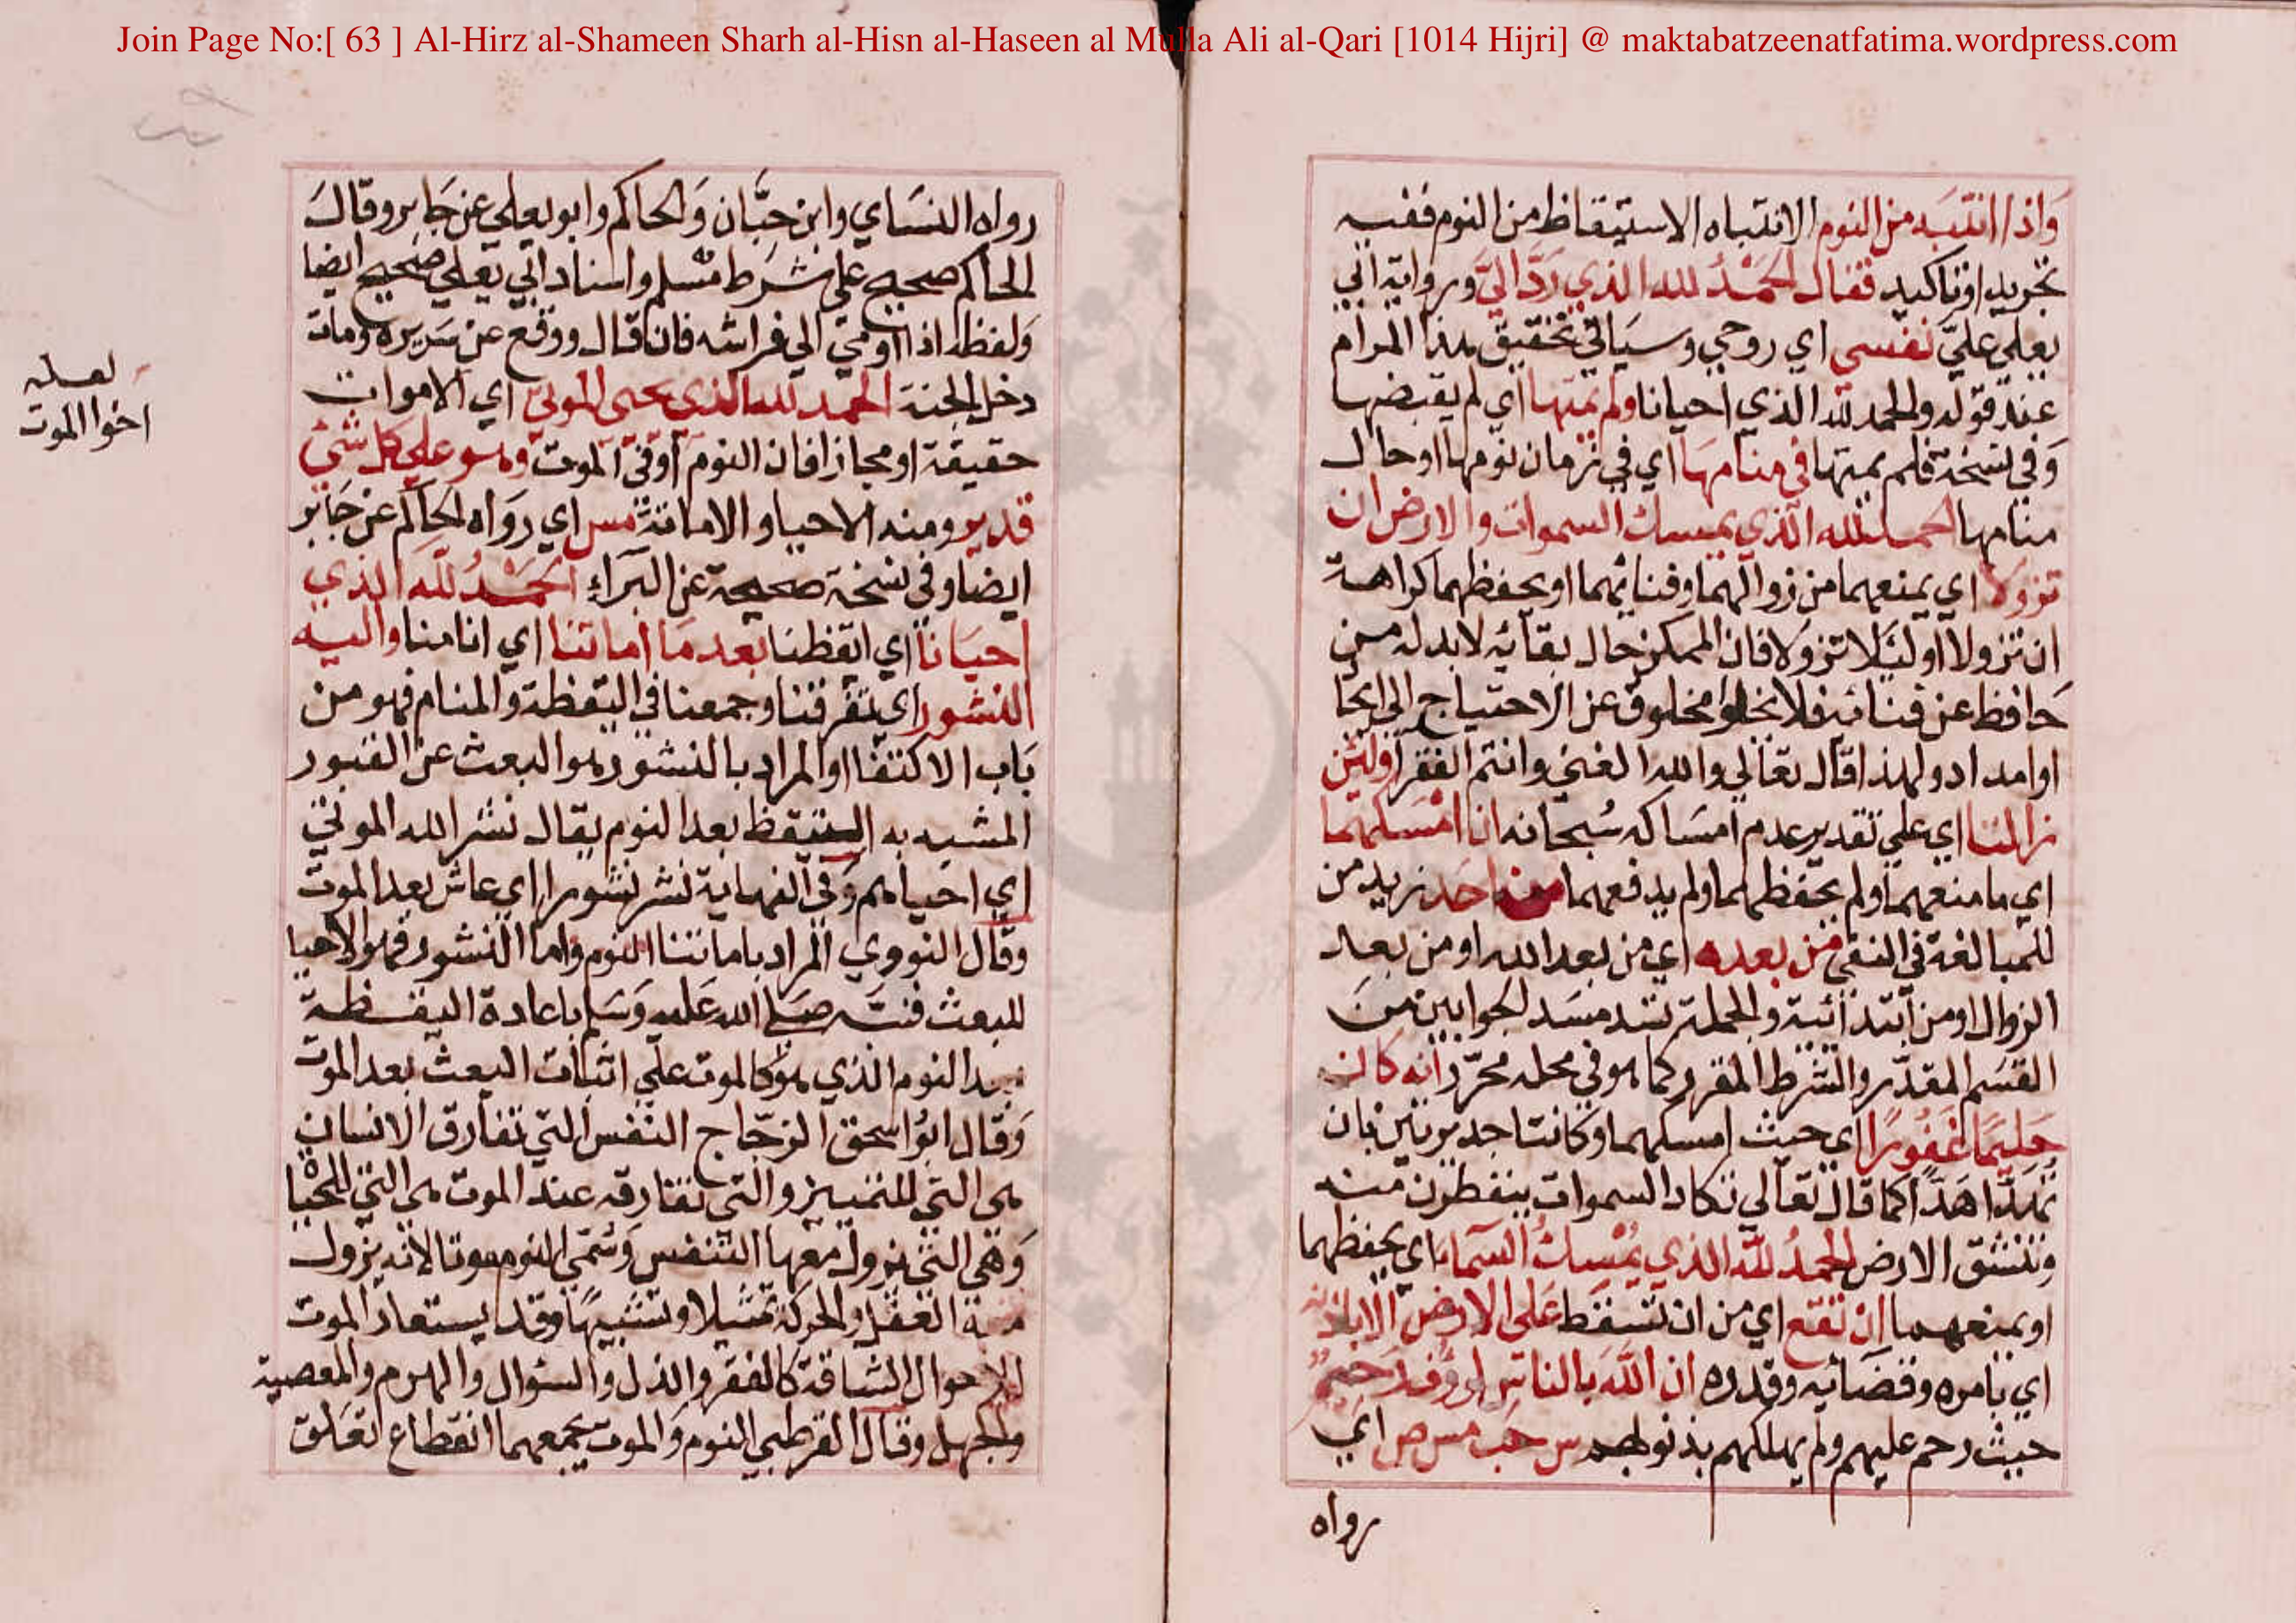 Join Page No:[ 63 ] Al-Hirz al-Shameen Sharh al-Hisn al-Haseen al Mulla Ali al-Qari [1014 Hijri] @ maktabatzeenatfatima.wordpress.com
وَاذا انتَبَه من النوم الانتباه الاستيقاظ من النوم ففيه
تجريد اوتاكيد فقال الحَمْدُ لله الذي رَدَّ اليَّ ورواية ابي
يعلي عليّ نفسي اي روحي وسيَاتي تحقيق هذا المرام
عند قوله والحمد لله الذي احيانا ولم يمتها اي لم يقبضها
وَفي نسخة فلم يمتها في منامها اي في زمان نومها او حال
منامها الحمد لله الذي يمسك السموات والارض ان
تزولا اي يمنعهما من زوالهما وفنائهما او يحفظهما كراهة
ان تزولا او لئلا تزولا فان الممكن حال بقائه لا بد له من
حَافظ عن فنائه فلا يخلوا مخلوق عن الاحتياج الي ايجا
او امداد ولهذا قال تعَالي والله الغني وانتم الفقرا ولئن
زالتا اي علي تقدير عدم امسَاكه سُبحانه ان امْسَكهما
اي ما منعهما ولم يحفظهما ولم يدفعهما من احَد زيد من
للمبالغة في النفي من بعده اي من بعد الله او من بعد
الزوال او من ابتدائية والجملة تسد مسَد الجوابين منَ
القسَم المقدّر والشرط المقرر كما هو في محله محرّر انه كان
حَليمًا غفُورًا اي حيث امسكهما وكانتا جديرتين بان
تهدّا هَدًّا كما قال تعَالي تكاد السموات يتفطرن منه
وتنشق الارض الحمدُ للّه الذي يُمْسِكُ السّمآء اي يحفظهما
او يمنعهما انْ تقع اي من ان تسقط عَلى الارض الا باذنه
اي بامره وقضَائه وقدره ان اللّهَ بالناس لرؤف رَحيمٌ
حيث رحم عليهم ولم يهلكهم بذنوبهم س حب مس ص اي
رواه
رواه النسَاي وابن حبَّان وَالحاكم وابو يعلي عن جَابر وقالَ
الحاكم صحيح علي شرَط مسْلم واسناد ابي يَعلي صَحيح ايضا
وَلفظه اذا اوي الي فراشه فان قال ووقع عن سَريره ومات
دخل الجنة الحمد لله الذي يحيى الموتى اي الاموات
حقيقة او مجازا فان النوم اوفي الموت وهو علي كل شئ
قدير ومنه الاحيا والاماتة مس اي رَوَاه الحاكم عن جَابر
ايضا وفي نسخة صحيحة عن البَراءِ الحَمْدُ للّه الذي
احيَانا اي ايقظنا بعد مَا اماتنا اي انامنا واليه
النشور اي تفرقنا وجمعنا في اليقظة والمنام فهو من
بَاب الاكتفا او المراد بالنشور هو البعث عن القبور
المشبه به التيقظ بعد النوم يقال نشر الله الموتي
اي احياهم وَفي النهاية نشر نشورا اي عاش بعد الموت
وقال النووي المراد باماتنا النوم واما النشور فهو الاحيا
للبعث فنبّه صَلي الله عَليه وَسَلم باعادة اليقظة
بعد النوم الذي هو كالموت علي اثبات البعث بعد الموت
وَقال ابوُاسحق الزجّاج النفس التي تفارق الانسان
هى التي للتمييز والتي تفارقه عند الموت هى التي للحيٰا
وَهْي التي يزول معها التنفس وَسُمّي النوم موتا لانه يزول
العقل والحركة تمثيلا وتشبيهًا وقد يستعار الموت
للاحوال الشاقة كالفقر والذل والسؤال والهرم والمعصية
والجهل وقال القرطبي النوم وَالموت يجمعهما انقطاع تعَلق
لعله
اخوا الموت